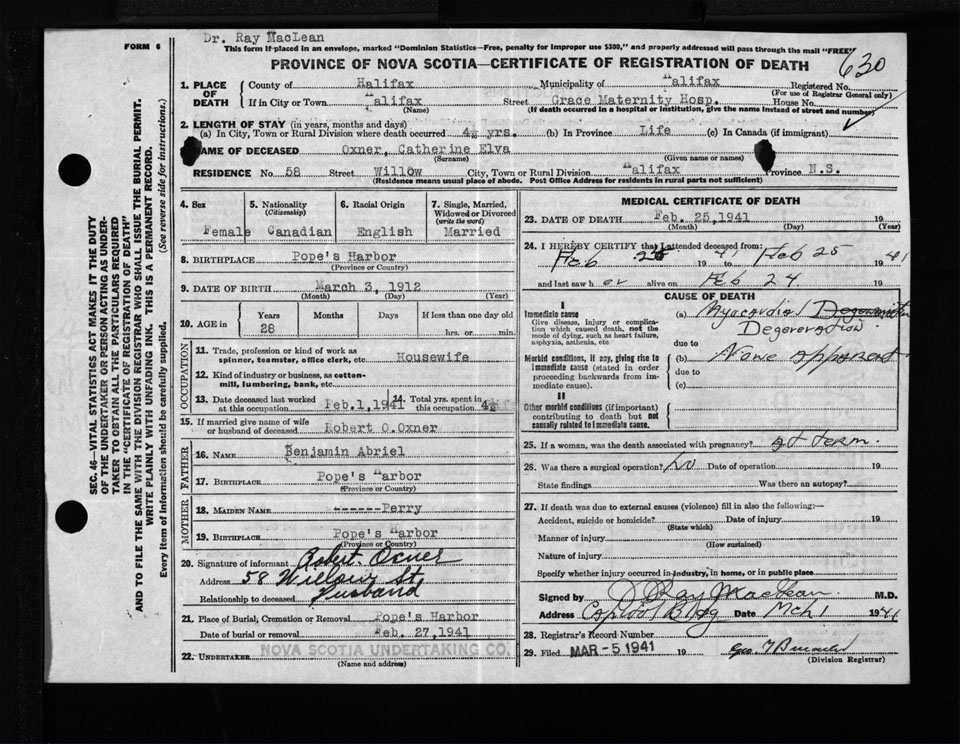 Dr. Ray MacLean
FORM 6
This form if placed in an envelope, marked "Dominion Statistics—Free, penalty for improper use $300," and properly addressed will pass through the mail "FREE"
PROVINCE OF NOVA SCOTIA—CERTIFICATE OF REGISTRATION OF DEATH
630
1. PLACE OF DEATH
County of Halifax Municipality of Halifax Registered No.
(For use of Registrar General only)
If in City or Town Halifax Street Grace Maternity Hosp. House No.
(Name) (If death occurred in a hospital or institution, give the name instead of street and number)
2. LENGTH OF STAY (in years, months and days)
(a) In City, Town or Rural Division where death occurred 4½ yrs. (b) In Province Life (c) In Canada (if immigrant)
NAME OF DECEASED Oxner, Catherine Elva
(Surname) (Given name or names)
RESIDENCE No. 58 Street Willow City, Town or Rural Division Halifax Province N.S.
(Residence means usual place of abode. Post Office Address for residents in rural parts not sufficient)
4. Sex
Female
5. Nationality
(Citizenship)
Canadian
6. Racial Origin
English
7. Single, Married, Widowed or Divorced
(write the word)
Married
8. BIRTHPLACE Pope's Harbor
(Province or Country)
9. DATE OF BIRTH March 3, 1912
(Month) (Day) (Year)
10. AGE in Years Months Days If less than one day old
28 hrs. or min.
OCCUPATION
11. Trade, profession or kind of work as spinner, teamster, office clerk, etc. Housewife
12. Kind of industry or business, as cotton-mill, lumbering, bank, etc.
13. Date deceased last worked at this occupation Feb.1,1941
14. Total yrs. spent in this occupation 4½
15. If married give name of wife or husband of deceased Robert O.Oxner
FATHER
16. NAME Benjamin Abriel
17. BIRTHPLACE Pope's Harbor
(Province or Country)
MOTHER
18. MAIDEN NAME ------Perry
19. BIRTHPLACE Pope's Harbor
(Province or Country)
20. Signature of informant Robert Oxner
Address 58 Willow St.
Relationship to deceased Husband
21. Place of Burial, Cremation or Removal Pope's Harbor
Date of burial or removal Feb. 27,1941
22. UNDERTAKER NOVA SCOTIA UNDERTAKING CO.
(Name and address)
MEDICAL CERTIFICATE OF DEATH
23. DATE OF DEATH Feb. 25,1941 19
(Month) (Day) (Year)
24. I HEREBY CERTIFY that I attended deceased from:
Feb 25 1941 to Feb 25 1941
and last saw her alive on Feb 24 19
CAUSE OF DEATH
I
Immediate cause
Give disease, injury or complication which caused death, not the mode of dying, such as heart failure, asphyxia, asthenia, etc.
(a) Myocardial
Degeneration
due to
Morbid conditions, if any, giving rise to immediate cause (stated in order proceeding backwards from immediate cause).
(b) None apparent
due to
(c)
II
Other morbid conditions (if important) contributing to death but not causally related to immediate cause.
25. If a woman, was the death associated with pregnancy? at term.
26. Was there a surgical operation? No Date of operation 19
State findings Was there an autopsy?
27. If death was due to external causes (violence) fill in also the following:—
Accident, suicide or homicide? Date of injury 19
(State which)
Manner of injury
(How sustained)
Nature of injury
Specify whether injury occurred in industry, in home, or in public place
Signed by J Ray MacLean M.D.
Address Capitol Bldg Date Mch 1 1941
28. Registrar's Record Number
29. Filed MAR-5 1941 19
(Division Registrar)
SEC. 46—VITAL STATISTICS ACT MAKES IT THE DUTY
OF THE UNDERTAKER OR PERSON ACTING AS UNDER-
TAKER TO OBTAIN ALL THE PARTICULARS REQUIRED
IN THE "CERTIFICATE OF REGISTRATION OF DEATH"
AND TO FILE THE SAME WITH THE DIVISION REGISTRAR WHO SHALL ISSUE THE BURIAL PERMIT.
WRITE PLAINLY WITH UNFADING INK. THIS IS A PERMANENT RECORD.
Every item of information should be carefully supplied. (See reverse side for instructions.)